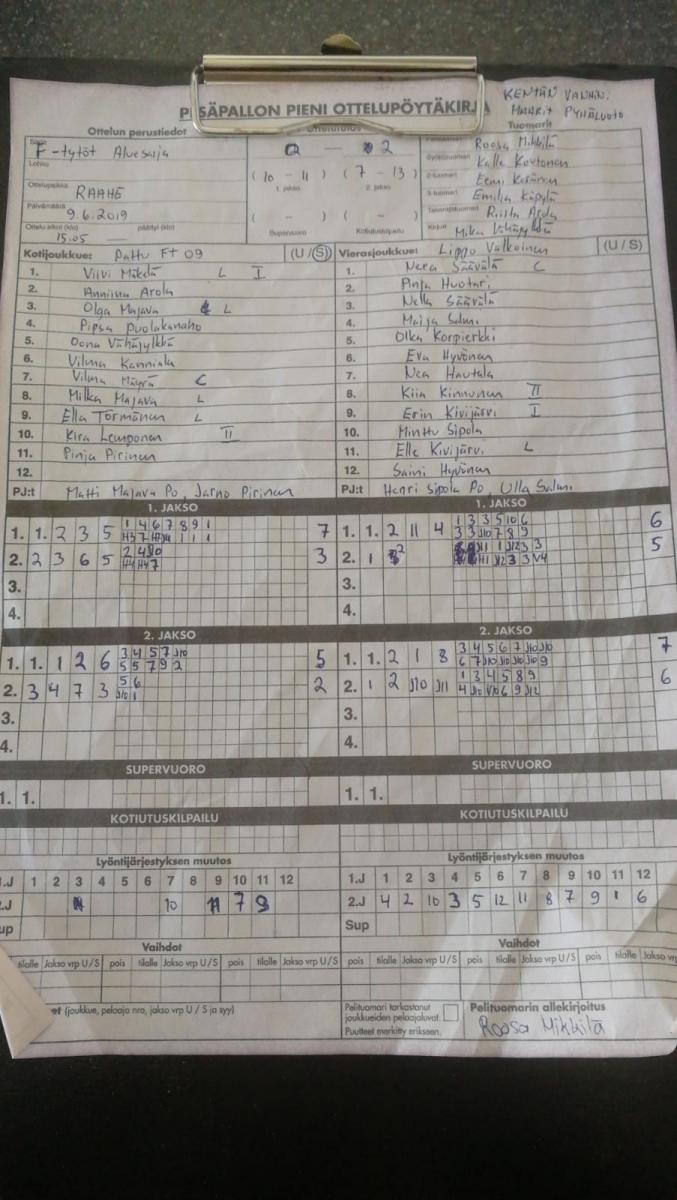 KENTÄN VANHIN:
MAARIT PYHÄLUOTO
PESÄPALLON PIENI OTTELUPÖYTÄKIRJA
Ottelun perustiedot
Ottelutulos
Tuomarit
Sarja
F-tytöt Aluesarja
Lohko
Ottelupaikka
RAAHE
Päivämäärä
9.6.2019
Ottelu alkoi (klo) päättyi (klo)
15.05
0 – 2
(10 – 11) (7 – 13)
1. jakso 2. jakso
( – ) ( – )
Supervuoro Kotiutuskilpailu
Roosa Mikkilä
Syöttötuomari Kalle Koutonen
2-tuomari Eemi Keränen
3-tuomari Emilia Käpylä
Takarajatuomari Riista Arola
Kirjuri Mika Vähäjylkkä
Kotijoukkue: Pattu F+ 09 (U / S)
1. Viivi Mäkelä L I
2. Anniina Arola
3. Olga Majava L
4. Pipsa Puolakanaho
5. Oona Vähäjylkkä
6. Vilma Kanniala
7. Vilma Mäyrä C
8. Milka Majava L
9. Ella Törmänen L
10. Kira Lemponen II
11. Pinja Pirinen
12.
PJ:t Matti Majava Po, Jarno Pirinen
Vierasjoukkue: Lippo Valkoinen (U / S)
1. Neea Säävälä C
2. Pinja Huotari
3. Nella Säävälä
4. Maija Salmi
5. Olka Korpierkki
6. Eva Hyvönen
7. Nea Hautala
8. Kiia Kinnunen II
9. Erin Kivijärvi I
10. Minttu Sipola
11. Elle Kivijärvi L
12. Saini Hyvönen
PJ:t Henri Sipola Po, Ulla Salmi
1. JAKSO
1. 1. 2 3 5 1 4 6 7 8 9 1 7
2. 2 3 6 5 2 4 J10 3
H4 H4 7
3.
4.
1. JAKSO
1. 1. 2 11 4 1 3 3 5 10 6 6
3 3 J10 7 8 9
2. 1 2 J11 1 J12 3 3 5
H1 J12 3 3 V4
3.
4.
2. JAKSO
1. 1. 1 2 6 3 4 5 7 J10 5
5 5 7 9 2
2. 3 4 7 3 5 6 2
J10 1
3.
4.
2. JAKSO
1. 1. 2 1 8 3 4 5 6 7 J10 J10 7
6 7 J10 J10 J10 J10 9
2. 1 2 J10 J11 1 3 4 5 8 9 6
4 J10 V10 6 9 J12
3.
4.
SUPERVUORO
1. 1.
SUPERVUORO
1. 1.
KOTIUTUSKILPAILU
KOTIUTUSKILPAILU
Lyöntijärjestyksen muutos
1.J 1 2 3 4 5 6 7 8 9 10 11 12
.J 10 7 9
up
Lyöntijärjestyksen muutos
1.J 1 2 3 4 5 6 7 8 9 10 11 12
2.J 4 2 10 3 5 12 11 8 7 9 1 6
Sup
Vaihdot
tilalle Jakso vrp U/S pois tilalle Jakso vrp U/S pois tilalle Jakso vrp U/S
Vaihdot
pois tilalle Jakso vrp U/S pois tilalle Jakso vrp U/S pois tilalle Jakso vrp
et (joukkue, pelaaja nro, jakso vrp U / S ja syy)
Pelituomari tarkastanut
joukkueiden pelaajaluvat.
Puutteet merkitty erikseen.
Pelituomarin allekirjoitus
Roosa Mikkilä